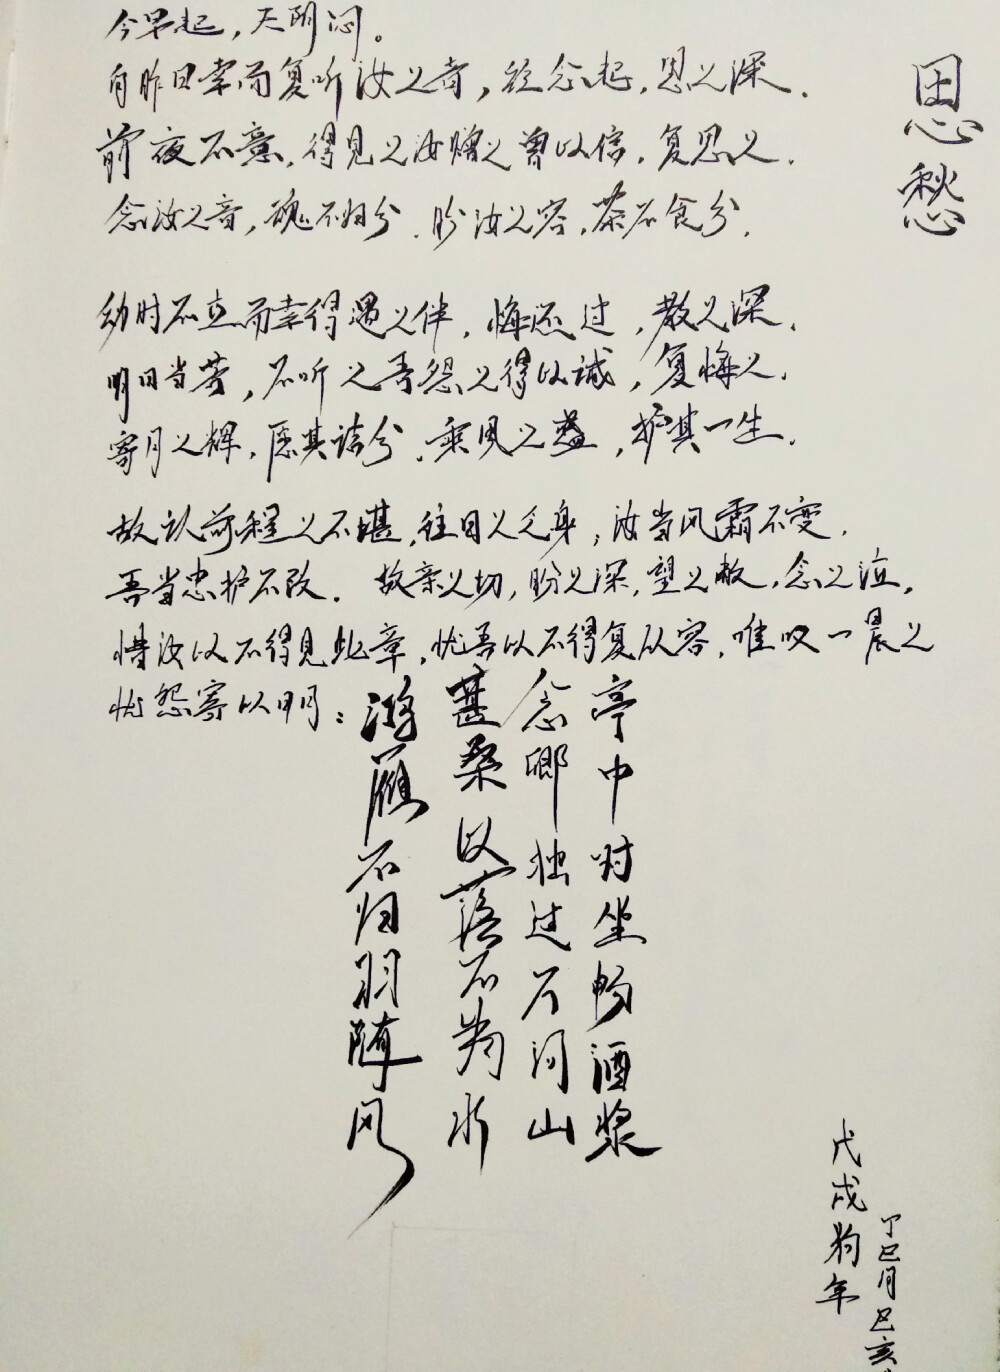 思愁
今早起，天阴闷。
自昨日幸而复听汝之音，径念起，思之深．
前夜不意，得见之汝赠之曾以信，复思之．
念汝之音，魂不归兮．盼汝之容，茶不食兮．
幼时不立而幸得遇之伴，悔还过，教之深．
明日当苦，不听之吾怨之得以诚，复悔之．
寄月之辉，愿其读兮．乘风之益，护其一生．
故认前程之不堪，往日之之身，汝当风霜不变．
吾当忠护不改．故亲之切，盼之深，望之散，念之泣．
惜汝以不得见此章，忧吾以不得复从容，唯叹一晨之
忧怨寄以明月：
亭中对坐畅酒浆
念卿独过不问山
葚桑以落不为水
鸿雁不归羽随风
戊戌狗年
丁巳月己亥